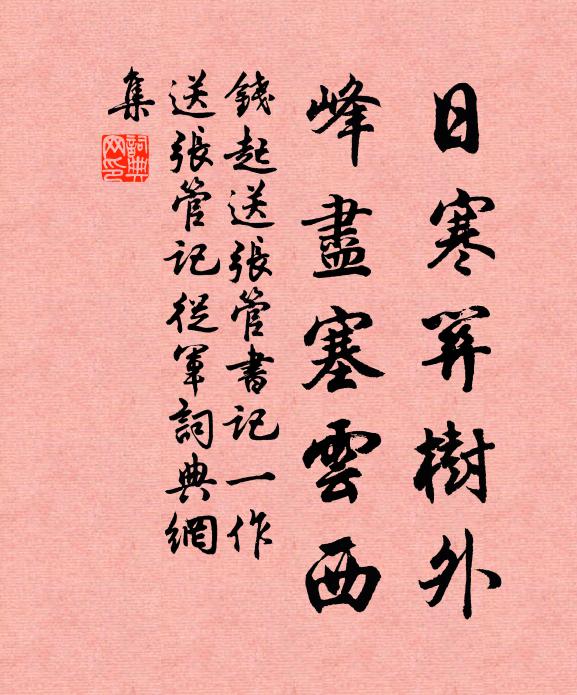 日寒關樹外
峰盡塞雲西
錢起送張管書記一作
送張管記從軍詞典網
集
詞典
网印